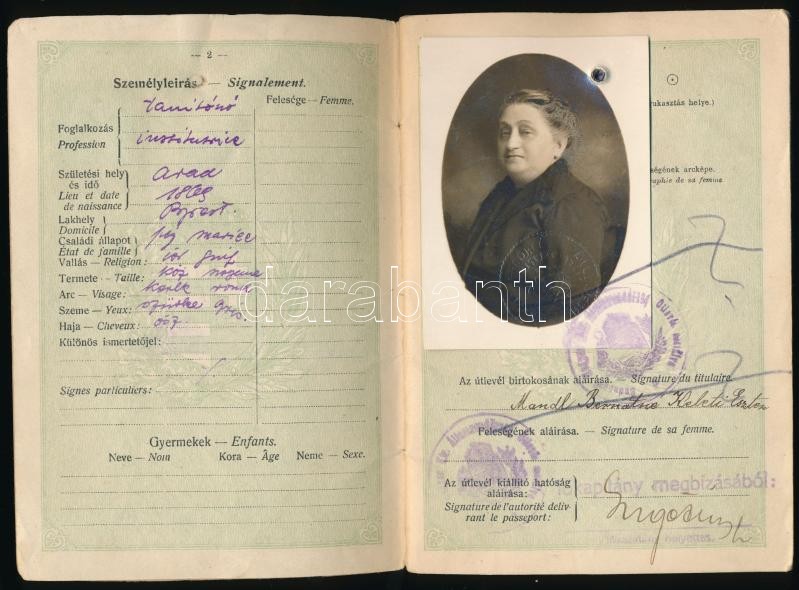 — 2 —
Személyleirás — Signalement.
Felesége — Femme.
Foglalkozás
Profession
Tanitónő
institutrice
Születési hely
és idő
Lieu et date
de naissance
Arad
1869
Lakhely
Domicile
Bpest.
Családi állapot
État de famille
férj mariée
Vallás — Religion: izr juif
Termete — Taille: köz moyenne
Arc — Visage: kerek ronde
Szeme — Yeux: szürke gris
Haja — Cheveux: ősz
Különös ismertetőjel:
Signes particuliers:
Gyermekek — Enfants.
Neve — Nom Kora — Âge Neme — Sexe.
rukasztás helye.)
ségének arcképe.
raphie de sa femme
darabanth
Az útlevél birtokosának aláirása. — Signature du titulaire.
Mandl Bernátné Keleti Eszter
Feleségének aláirása. — Signature de sa femme.
Az útlevél kiállitó hatóság
aláirása:
Signature de l'autorité deliv-
rant le passeport:
főkapitány megbizásából:
helyettes.